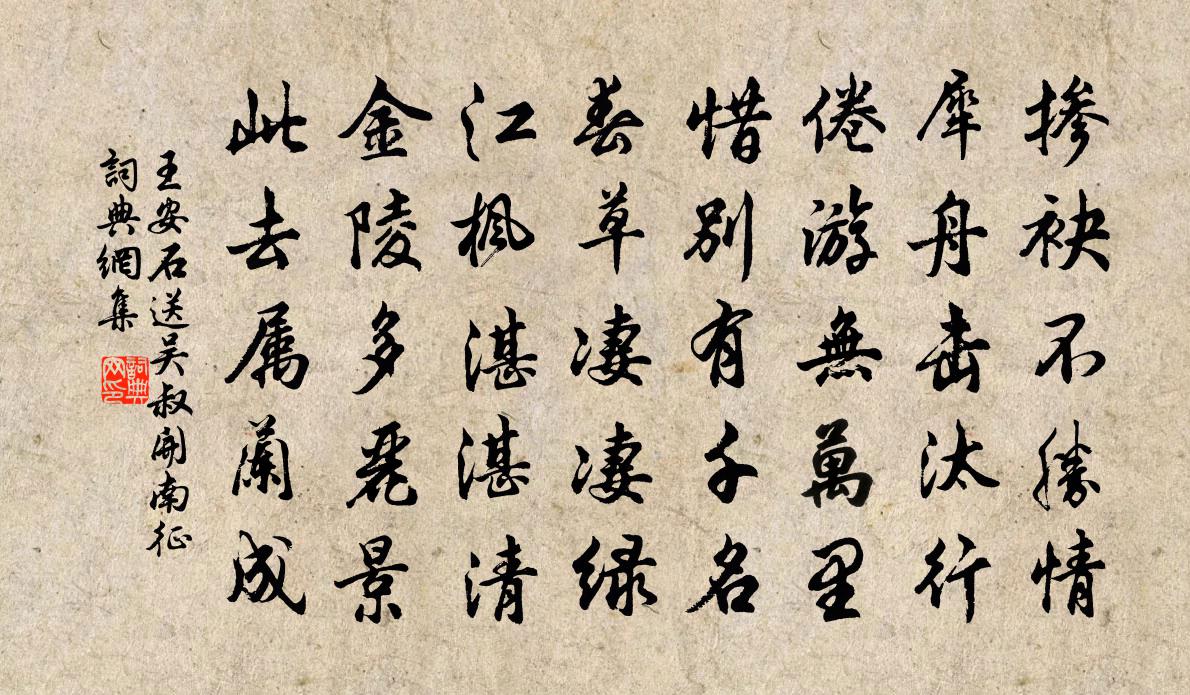 掺袂不勝情
犀舟击汰行
倦游無萬里
惜别有千名
春草凄凄绿
江楓湛湛清
金陵多麗景
此去属蘭成
王安石送吴叔開南征
詞典網集
詞典
网印